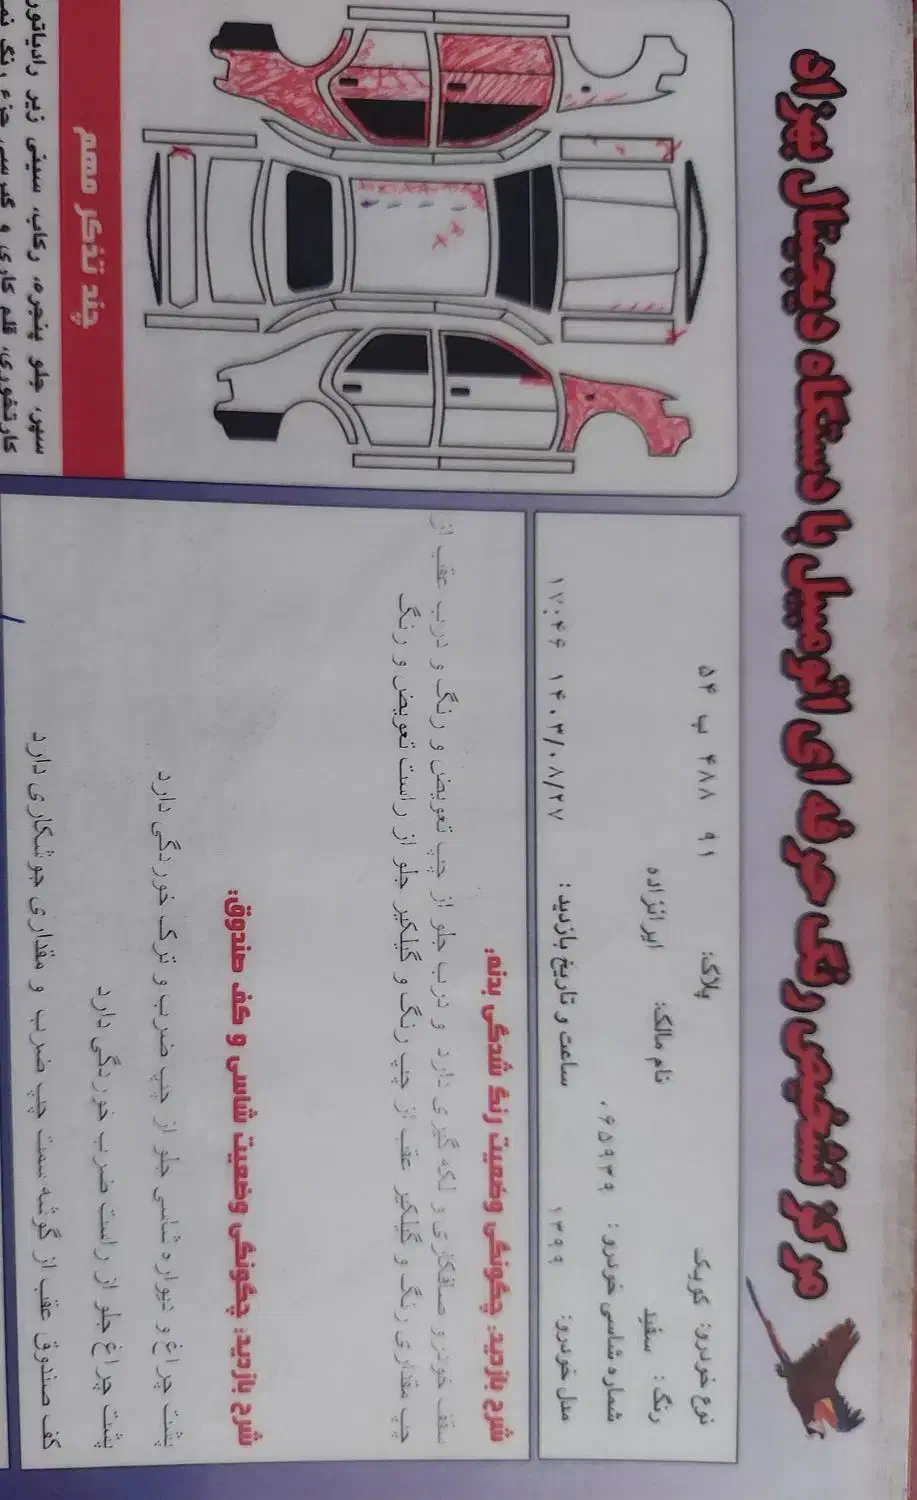 مرکز تشخیص رنگ حرفه ای اتومبیل با دستگاه دیجیتال بهزاد
نوع خودرو: کوییک
پلاک: ۹۱ ۴۸۸ ب ۵۴
رنگ: سفید
نام مالک: ایرانزاده
شماره شاسی خودرو: ۰۶۵۹۳۹
مدل خودرو: ۱۳۹۹
ساعت و تاریخ بازدید: ۱۴۰۳/۰۸/۲۷ ۱۷:۴۶
شرح بازدید: چگونگی وضعیت رنگ شدگی بدنه:
سقف خودرو صافکاری و لکه گیری دارد و درب جلو از چپ تعویض و رنگ و درب عقب از
چپ مقداری رنگ و گیلگیر عقب از چپ رنگ و گیلگیر جلو از راست تعویض و رنگ
شرح بازدید: چگونگی وضعیت شاسی و کف صندوق:
پشت چراغ و دیواره شاسی جلو از چپ ضرب و ترک خوردگی دارد
پشت چراغ جلو از راست ضرب خوردگی دارد
کف صندوق عقب از گوشه سمت چپ ضرب و مقداری جوشکاری دارد
چند تذکر مهم
سپر، جلو پنجره، رکاب، سینی زیر رادیاتور